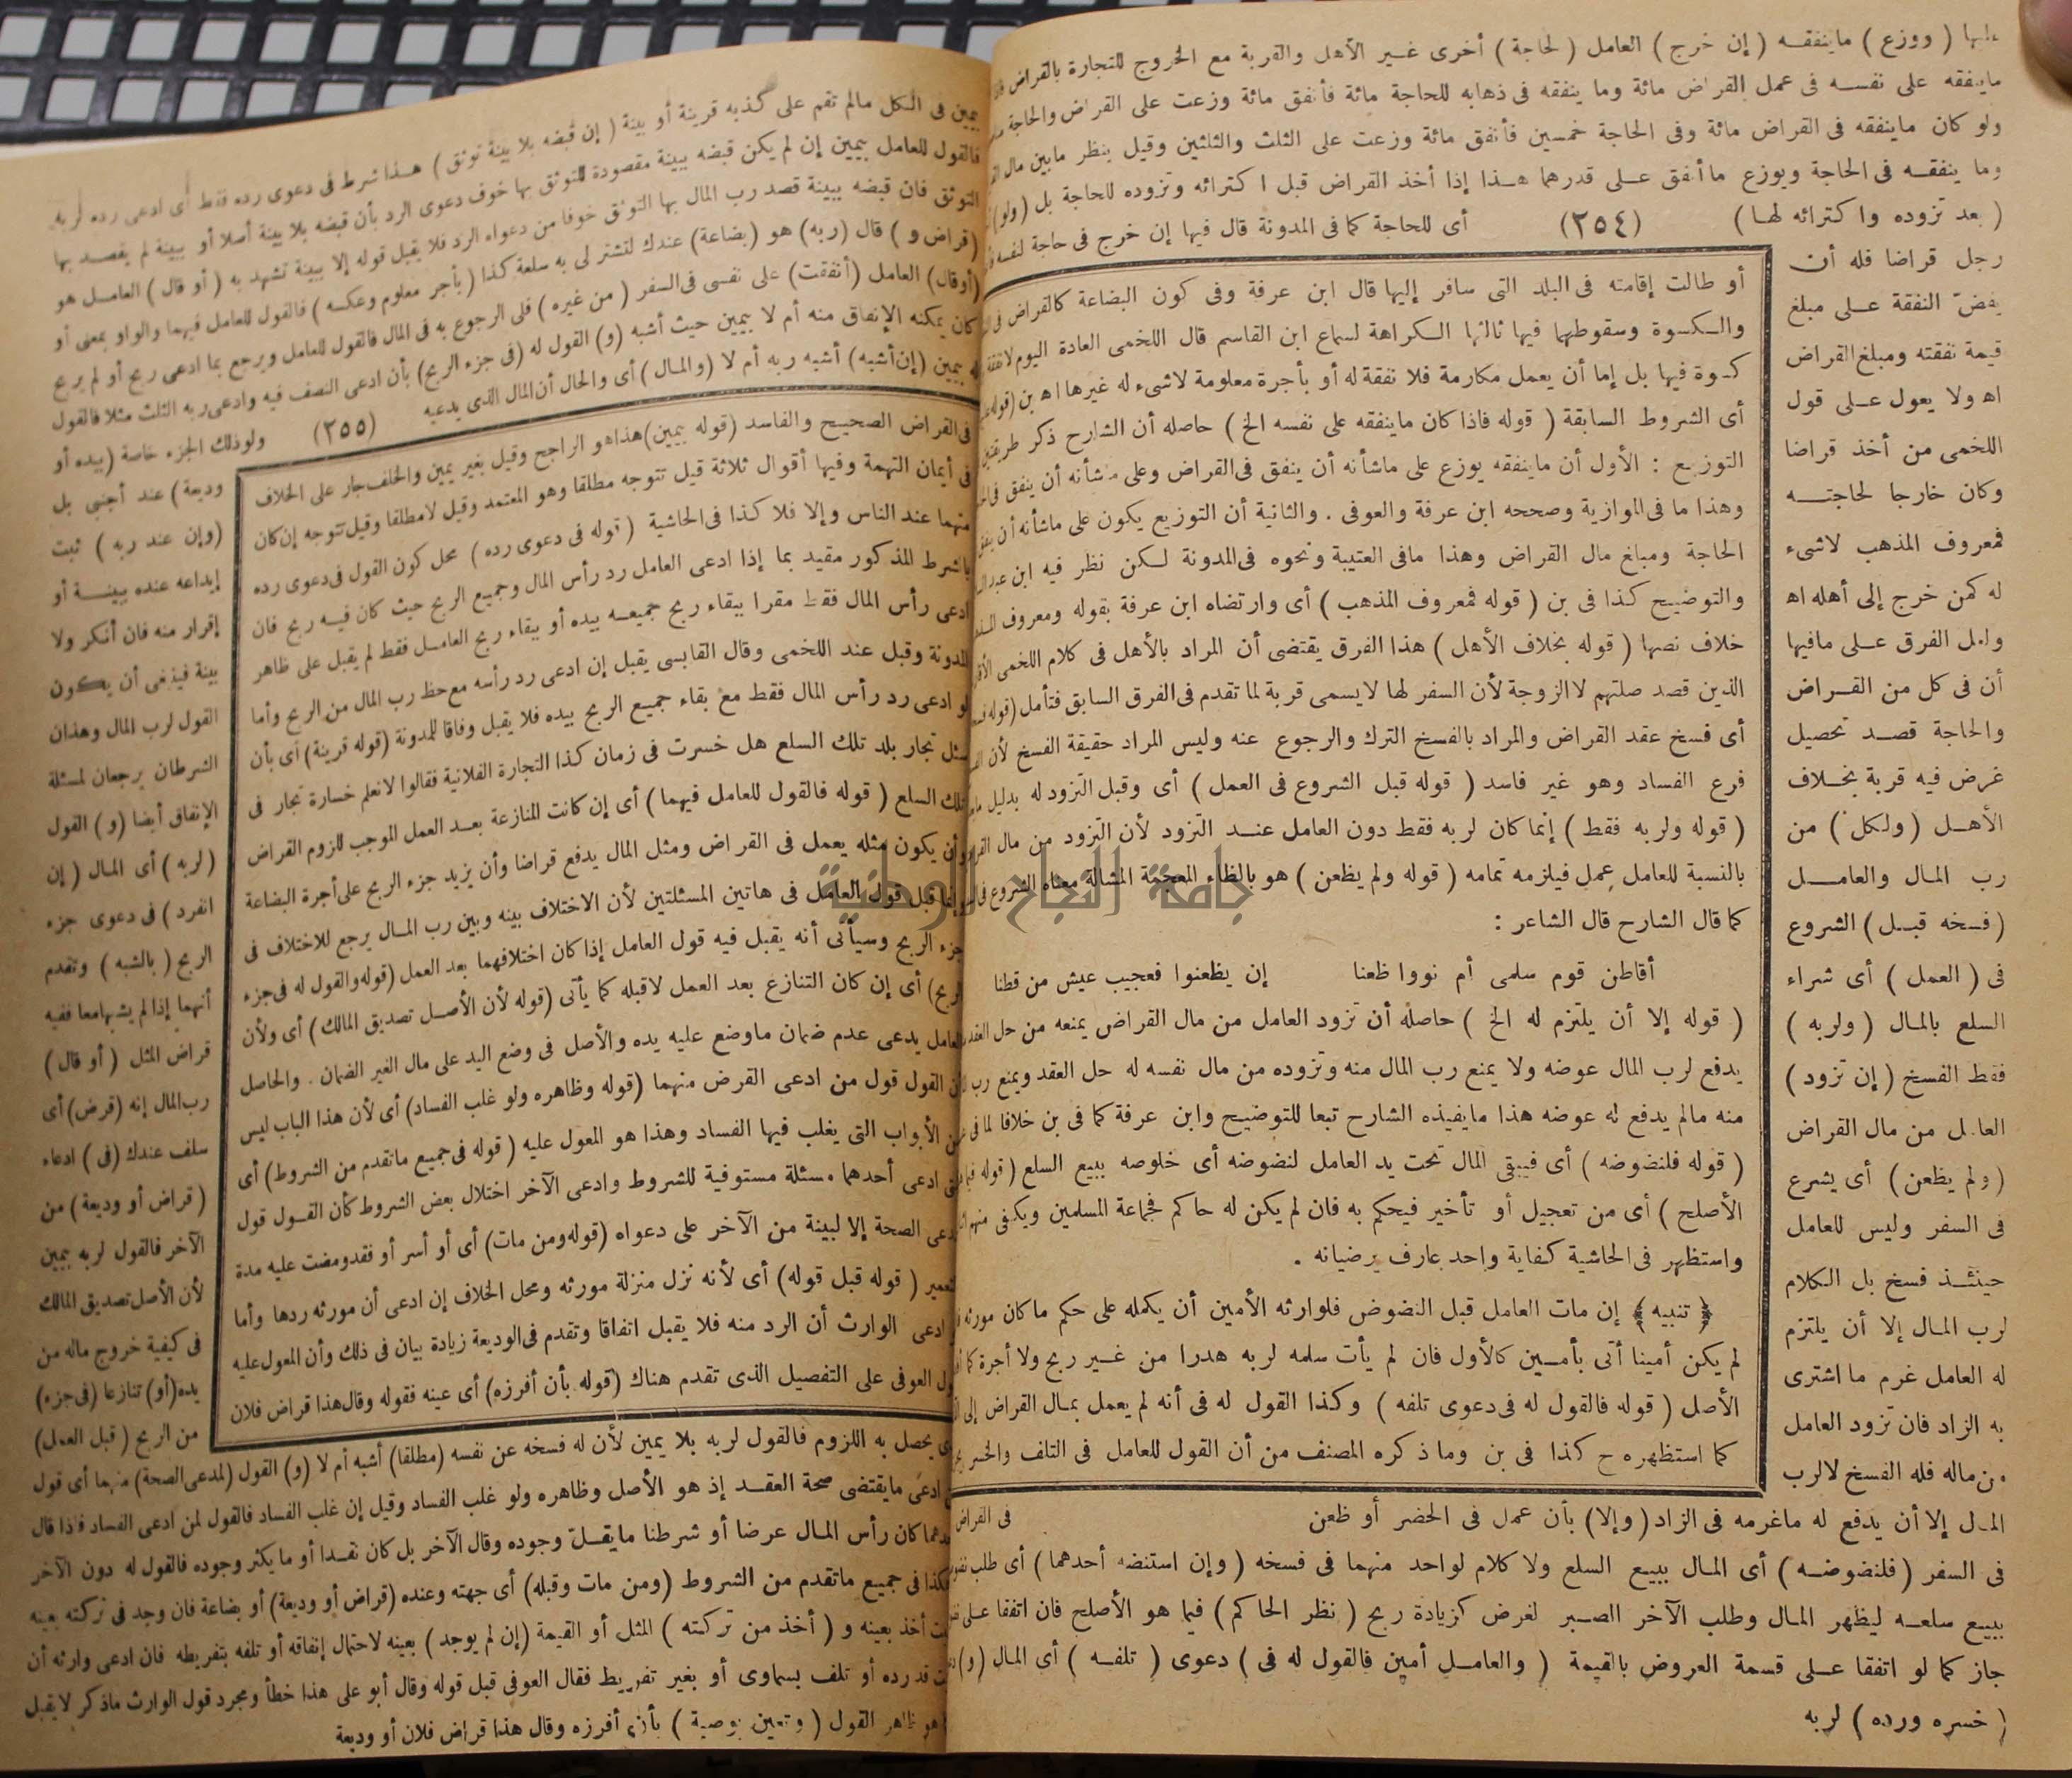 عليها ( ووزع ) ماينفقه ( إن خرج ) العامل ( لحاجة ) أخرى غير الأهل والقربة مع الخروج للتجارة بالقراض فان
ماينفقه على نفسه فى عمل القراض مائة وما ينفقه فى ذهابه للحاجة مائة فأنفق مائة وزعت على القراض والحاجة
ولو كان ماينفقه فى القراض مائة وفى الحاجة خمسين فأنفق مائة وزعت على الثلث والثلثين وقيل ينظر مابين مال
وما ينفقه فى الحاجة ويوزع ما أنفق على قدرهما هذا إذا أخذ القراض قبل اكترائه وتزوده للحاجة بل ( ولو )
( بعد تزوده واكترائه لها ) (٢٥٤) أى للحاجة كما فى المدونة قال فيها إن خرج فى حاجة لنفسه
رجل قراضا فله أن
يفضّ النفقة على مبلغ
قيمة نفقته ومبلغ القراض
اه ولا يعول على قول
اللخمى من أخذ قراضا
وكان خارجا لحاجته
فمعروف المذهب لاشىء
له كمن خرج إلى أهله اه
ولعل الفرق على مافيها
أن فى كل من القراض
والحاجة قصد تحصيل
غرض فيه قربة بخلاف
الأهل ( ولكل ) من
رب المال والعامل
( فسخه قبل ) الشروع
فى ( العمل ) أى شراء
السلع بالمال ( ولربه )
فقط الفسخ ( إن تزود )
العامل من مال القراض
( ولم يظعن ) أى يشرع
فى السفر وليس للعامل
حينئذ فسخ بل الكلام
لرب المال إلا أن يلتزم
له العامل غرم ما اشترى
به الزاد فان تزود العامل
من ماله فله الفسخ لالرب
المال إلا أن يدفع له ماغرمه فى الزاد ( وإلا ) بأن عمل فى الحضر أو ظعن
فى السفر ( فلنضوضه ) أى المال ببيع السلع ولا كلام لواحد منهما فى فسخه ( وإن استنضه أحدهما ) أى طلب
ببيع سلعه ليظهر المال وطلب الآخر الصبر لغرض كزيادة ربح ( نظر الحاكم ) فيما هو الأصلح فان اتفقا على
جاز كما لو اتفقا على قسمة العروض بالقيمة ( والعامل أمين فالقول له فى ) دعوى ( تلفه ) أى المال ( و )
( خسره ورده ) لربه
أو طالت إقامته فى البلد التى سافر إليها قال ابن عرفة وفى كون البضاعة كالقراض فى
والكسوة وسقوطهما فيها ثالثها الكراهة لسماع ابن القاسم قال اللخمى العادة اليوم لانفقة
كسوة فيها بل إما أن يعمل مكارمة فلا نفقة له أو بأجرة معلومة لاشىء له غيرها اه بن
أى الشروط السابقة ( قوله فاذا كان ماينفقه على نفسه الخ ) حاصله أن الشارح ذكر طريقتين
التوزيع : الأول أن ماينفقه يوزع على ماشأنه أن ينفق فى القراض وعلى ماشأنه أن ينفق فى
وهذا ما فى الموازية وصححه ابن عرفة والعوفى . والثانية أن التوزيع يكون على ماشأنه أن
الحاجة ومبلغ مال القراض وهذا مافى العتيبة ونحوه فى المدونة لكن نظر فيه ابن
والتوضيح كذا فى بن ( قوله فمعروف المذهب ) أى وارتضاه ابن عرفة بقوله ومعروف
خلاف نصها ( قوله بخلاف الأهل ) هذا الفرق يقتضى أن المراد بالأهل فى كلام اللخمى
الذين قصد صلتهم لا الزوجة لأن السفر لها لايسمى قربة لما تقدم فى الفرق السابق فتأمل
أى فسخ عقد القراض والمراد بالفسخ الترك والرجوع عنه وليس المراد حقيقة الفسخ لأن
فرع الفساد وهو غير فاسد ( قوله قبل الشروع فى العمل ) أى وقبل التزود له بدليل
( قوله ولربه فقط ) إنما كان لربه فقط دون العامل عند التزود لأن التزود من مال
بالنسبة للعامل عمل فيلزمه تمامه ( قوله ولم يظعن ) هو بالظاء المعجمة المشالة معناه الشروع فى
كما قال الشارح قال الشاعر :
أقاطن قوم سلمى أم نووا ظعنا إن يظعنوا فعجيب عيش من قطنا
( قوله إلا أن يلتزم له الخ ) حاصله أن تزود العامل من مال القراض يمنعه من حل العقد
يدفع لرب المال عوضه ولا يمنع رب المال منه وتزوده من مال نفسه له حل العقد ويمنع رب
منه مالم يدفع له عوضه هذا مايفيذه الشارح تبعا للتوضيح وابن عرفة كما فى بن خلافا لما فى
( قوله فلنضوضه ) أى فيبقى المال تحت يد العامل لنضوضه أى خلوصه ببيع السلع ( قوله
الأصلح ) أى من تعجيل أو تأخير فيحكم به فان لم يكن له حاكم فجماعة المسلمين ويكفى منهم
واستظهر فى الحاشية كفاية واحد عارف يرضيانه .
﴿ تنبيه ﴾ إن مات العامل قبل النضوض فلوارثه الأمين أن يكمله على حكم ما كان مورثه
لم يكن أمينا أتى بأمين كالأول فان لم يأت سلمه لربه هدرا من غير ربح ولا أجرة
الأصل ( قوله فالقول له فى دعوى تلفه ) وكذا القول له فى أنه لم يعمل بمال القراض إلى
كما استظهره ح كذا فى بن وما ذكره المصنف من أن القول للعامل فى التلف والخسر
فى القراض
جامعة النجاح الوطنية
بيمين فى الكل مالم تقم على كذبه قرينة أو بينة ( إن قبضه بلا بينة توثق ) هذا شرط فى دعوى رده فقط أى ادعى رده لربه
فالقول للعامل بيمين إن لم يكن قبضه ببينة مقصودة للتوثق بها خوف دعوى الرد بأن قبضه بلا بينة أصلا أو ببينة لم يقصد بها
التوثق فان قبضه ببينة قصد رب المال بها التوثق خوفا من دعواه الرد فلا يقبل قوله إلا ببينة تشهد به ( أو قال ) العامل هو
( قراض و ) قال ( ربه ) هو ( بضاعة ) عندك لتشتر لى به سلعة كذا ( بأجر معلوم وعكسه ) فالقول للعامل فيهما والواو بمعنى أو
( أوقال ) العامل ( أنفقت ) على نفسى فى السفر ( من غيره ) فلى الرجوع به فى المال فالقول للعامل ويرجع بما ادعى ربح أو لم يربح
كان يمكنه الإنفاق منه أم لا بيمين حيث أشبه ( و ) القول له ( فى جزء الربح ) بأن ادعى النصف فيه وادعى ربه الثلث مثلا فالقول
له بيمين ( إن أشبه ) أشبه ربه أم لا ( والمال ) أى والحال أن المال الذى يدعيه (٢٥٥) ولو ذلك الجزء خاصة ( بيده أو
وديعة ) عند أجنبى بل
( وإن عند ربه ) ثبت
إيداعه عنده ببينة أو
إقرار منه فان أنكر ولا
بينة فينبغى أن يكون
القول لرب المال وهذان
الشرطان يرجعان لمسئلة
الإنفاق أيضا ( و ) القول
( لربه ) أى المال ( إن
انفرد ) فى دعوى جزء
الربح ( بالشبه ) وتقدم
أنهما إذا لم يشبها معا ففيه
قراض المثل ( أو قال )
رب المال إنه ( قرض ) أى
سلف عندك ( فى ) ادعاء
( قراض أو وديعة ) من
الآخر فالقول لربه بيمين
لأن الأصل تصديق المالك
فى كيفية خروج ماله من
يده ( أو ) تنازعا ( فى جزء )
من الربح ( قبل العمل )
يحصل به اللزوم فالقول لربه بلا يمين لأن له فسخه عن نفسه ( مطلقا ) أشبه أم لا ( و ) القول ( لمدعى الصحة ) منهما أى قول
ادعى مايقتضى صحة العقد إذ هو الأصل وظاهره ولو غلب الفساد وقيل إن غلب الفساد فالقول لمن ادعى الفساد فاذا قال
كان رأس المال عرضا أو شرطنا مايقلّ وجوده وقال الآخر بل كان نقدا أو ما يكثر وجوده فالقول له دون الآخر
فى جميع ماتقدم من الشروط ( ومن مات وقبله ) أى جهته وعنده ( قراض أو وديعة ) أو بضاعة فان وجد فى تركته بعينه
أخذ بعينه و ( أخذ من تركته ) المثل أو القيمة ( إن لم يوجد ) بعينه لاحتمال إنفاقه أو تلفه بتفريطه فان ادعى وارثه أن
قد رده أو تلف بسماوى أو بغير تفريط فقال العوفى قبل قوله وقال أبو على هذا خطأ ومجرد قول الوارث ماذكر لايقبل
هو ظاهر القول ( وتعين بوصية ) بأن أفرزه وقال هذا قراض فلان أو وديعة
فى القراض الصحيح والفاسد ( قوله بيمين ) هذا هو الراجح وقيل بغير يمين والخلف جار على الخلاف
فى أيمان التهمة وفيها أقوال ثلاثة قيل تتوجه مطلقا وهو المعتمد وقيل لامطلقا وقيل تتوجه إن كان
متهما عند الناس وإلا فلا كذا فى الحاشية ( قوله فى دعوى رده ) محل كون القول فى دعوى رده
بالشرط المذكور مقيد بما إذا ادعى العامل رد رأس المال وجميع الربح حيث كان فيه ربح فان
ادعى رأس المال فقط مقرا ببقاء ربح جميعه بيده أو ببقاء ربح العامل فقط لم يقبل على ظاهر
المدونة وقبل عند اللخمى وقال القابسى يقبل إن ادعى رد رأسه مع حظ رب المال من الربح وأما
لو ادعى رد رأس المال فقط مع بقاء جميع الربح بيده فلا يقبل وفاقا للمدونة ( قوله قرينة ) أى بأن
سئل تجار بلد تلك السلع هل خسرت فى زمان كذا التجارة الفلانية فقالوا لانعلم خسارة تجار فى
تلك السلع ( قوله فالقول للعامل فيهما ) أى إن كانت المنازعة بعد العمل الموجب للزوم القراض
وأن يكون مثله يعمل فى القراض ومثل المال يدفع قراضا وأن يزيد جزء الربح على أجرة البضاعة
وإنما قبل قول العامل فى هاتين المسئلتين لأن الاختلاف بينه وبين رب المال يرجع للاختلاف فى
جزء الربح وسيأتى أنه يقبل فيه قول العامل إذا كان اختلافهما بعد العمل ( قوله والقول له فى جزء
الربح ) أى إن كان التنازع بعد العمل لاقبله كما يأتى ( قوله لأن الأصل تصديق المالك ) أى ولأن
العامل يدعى عدم ضمان ماوضع عليه يده والأصل فى وضع اليد على مال الغير الضمان . والحاصل
أن القول قول من ادعى القرض منهما ( قوله وظاهره ولو غلب الفساد ) أى لأن هذا الباب ليس
من الأبواب التى يغلب فيها الفساد وهذا هو المعول عليه ( قوله فى جميع ماتقدم من الشروط ) أى
ادعى أحدهما مسئلة مستوفية للشروط وادعى الآخر اختلال بعض الشروط كأن القول قول
مدعى الصحة إلا لبينة من الآخر على دعواه ( قوله ومن مات ) أى أو أسر أو فقد ومضت عليه مدة
التعمير ( قوله قبل قوله ) أى لأنه نزل منزلة مورثه ومحل الخلاف إن ادعى أن مورثه ردها وأما
ادعى الوارث أن الرد منه فلا يقبل اتفاقا وتقدم فى الوديعة زيادة بيان فى ذلك وأن المعول عليه
قول العوفى على التفصيل الذى تقدم هناك ( قوله بأن أفرزه ) أى عينه فقوله وقال هذا قراض فلان